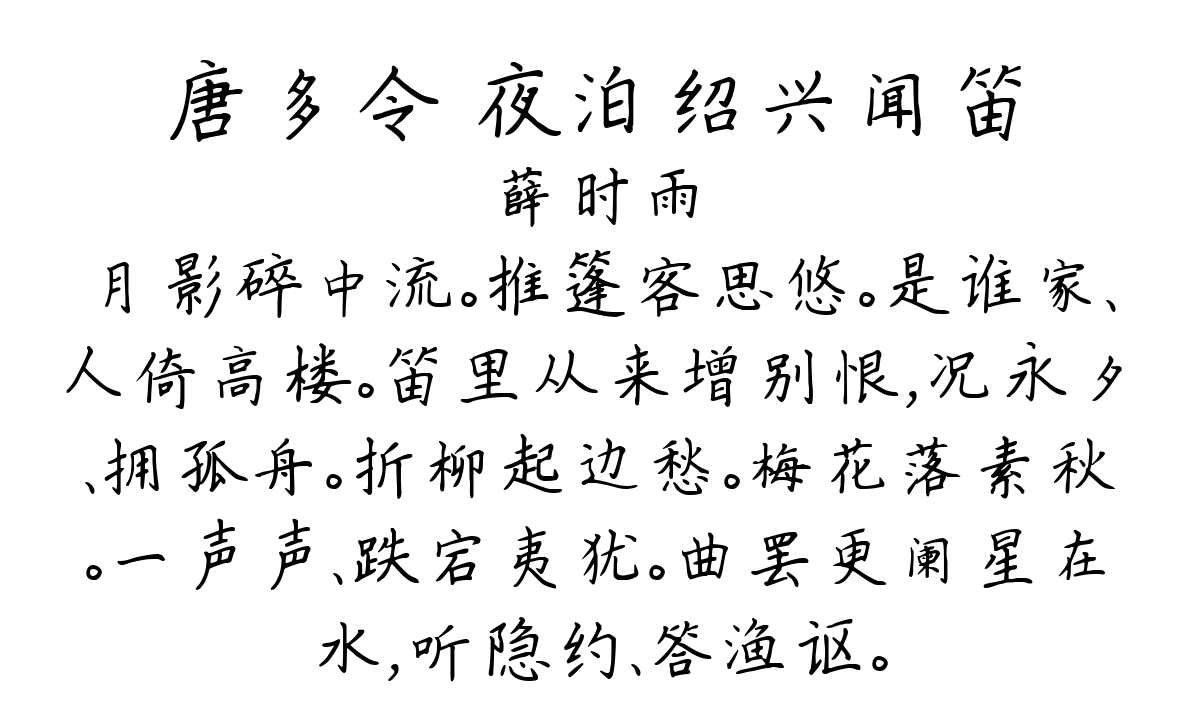 唐多令 夜泊绍兴闻笛
薛时雨
月影碎中流。推篷客思悠。是谁家、
人倚高楼。笛里从来增别恨,况永夕
、拥孤舟。折柳起边愁。梅花落素秋
。一声声、跌宕夷犹。曲罢更阑星在
水,听隐约、答渔讴。